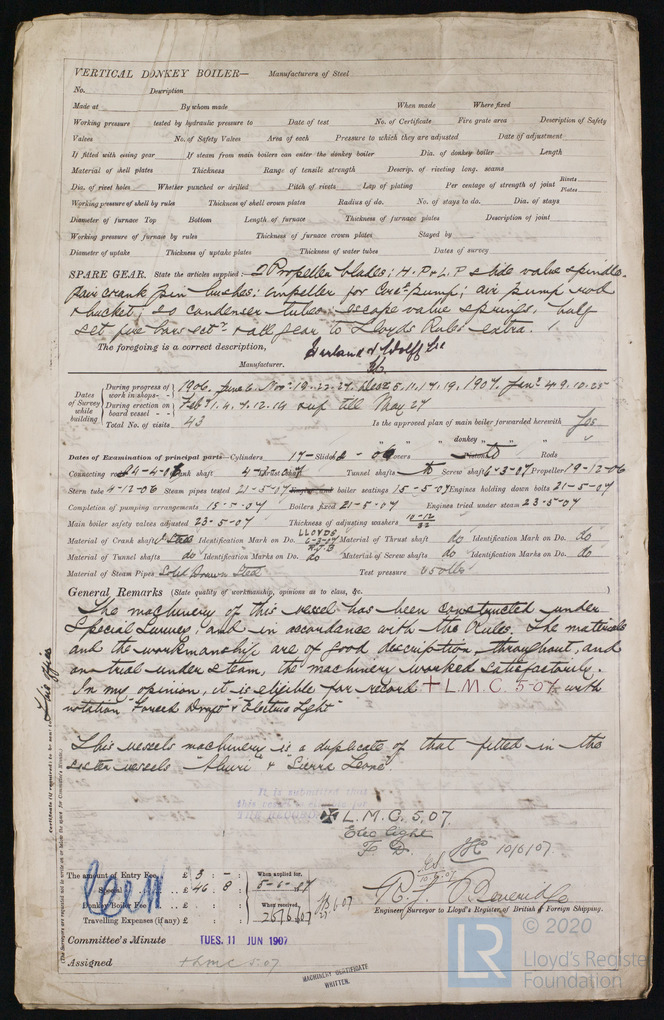 VERTICAL DONKEY BOILER— Manufacturers of Steel
No. Description
Made at By whom made When made Where fixed
Working pressure tested by hydraulic pressure to Date of test No. of Certificate Fire grate area Description of Safety
Valves No. of Safety Valves Area of each Pressure to which they are adjusted Date of adjustment
If fitted with easing gear If steam from main boilers can enter the donkey boiler Dia. of donkey boiler Length
Material of shell plates Thickness Range of tensile strength Descrip. of riveting long. seams
Dia. of rivet holes Whether punched or drilled Pitch of rivets Lap of plating Per centage of strength of joint Rivets Plates
Working pressure of shell by rules Thickness of shell crown plates Radius of do. No. of stays to do. Dia. of stays
Diameter of furnace Top Bottom Length of furnace Thickness of furnace plates Description of joint
Working pressure of furnace by rules Thickness of furnace crown plates Stayed by
Diameter of uptake Thickness of uptake plates Thickness of water tubes Dates of survey
SPARE GEAR. State the articles supplied:— 2 Propeller blades; H.P. & L.P. slide valve spindle.
pair crank pin bushes; impeller for Circ. pump; air pump rod
& bucket; 20 condenser tubes; escape valve springs, half
set fire bars etc. & all gear to Lloyds Rules extra.
The foregoing is a correct description,
Harland & Wolff Ltd
Manufacturer.
Dates of Survey while building
During progress of work in shops— 1906. June 6. Nov. 19. 22. 27. Dec. 5. 11. 17. 19. 1907. Jan. 4 9. 10. 25
During erection on board vessel— Feb. 1. 4. 7. 12. 14 & up till May 27
Total No. of visits 43
Is the approved plan of main boiler forwarded herewith Yes
" " " donkey " " "
Dates of Examination of principal parts—Cylinders Slides Covers Pistons Rods
Connecting rods Crank shaft Thrust shaft Tunnel shafts Screw shaft 6-3-07 Propeller 19-12-06
Stern tube 4-12-06 Steam pipes tested 21-5-07 Engine and boiler seatings 15-5-07 Engines holding down bolts 21-5-07
Completion of pumping arrangements 15-5-07 Boilers fixed 21-5-07 Engines tried under steam 23-5-07
Main boiler safety valves adjusted 23-5-07 Thickness of adjusting washers 10-12 32
Material of Crank shaft Identification Mark on Do. LLOYDS 6-3-07 Material of Thrust shaft do Identification Mark on Do. do
Material of Tunnel shafts do Identification Marks on Do. do Material of Screw shafts do Identification Marks on Do. do
Material of Steam Pipes Solid Drawn Steel Test pressure
General Remarks (State quality of workmanship, opinions as to class, &c.
The machinery of this vessel has been constructed under
Special Survey, and in accordance with the Rules. The materials
and the workmanship are of good description throughout, and
on trial under steam, the machinery worked satisfactorily.
In my opinion, it is eligible for record + L.M.C. 5-07 with
notation "Forced Draft" & "Electric Light"
This vessels machinery is a duplicate of that fitted in the
sister vessels "Aburi" & "Sierra Leone"
It is submitted that
this vessel is eligible for
THE RECORD
+ L.M.C. 5,07.
Elec light
F D.
10/6/07.
10.6.07
The amount of Entry Fee £ 3 : - :
Special £ 46 . 8 :
Donkey Boiler Fee £ : :
Travelling Expenses (if any) £ : :
When applied for, 5-6-07
When received, 26/6/07
Engineer Surveyor to Lloyd's Register of British & Foreign Shipping.
Committee's Minute TUES. 11 JUN 1907
Assigned + LMC 5.07
MACHINERY CERTIFICATE
WRITTEN.
Certificate (if required) to be sent to
(The Surveyors are requested not to write on or below the space for Committee's Minute.)
© 2020
LR
Lloyd's Register
Foundation